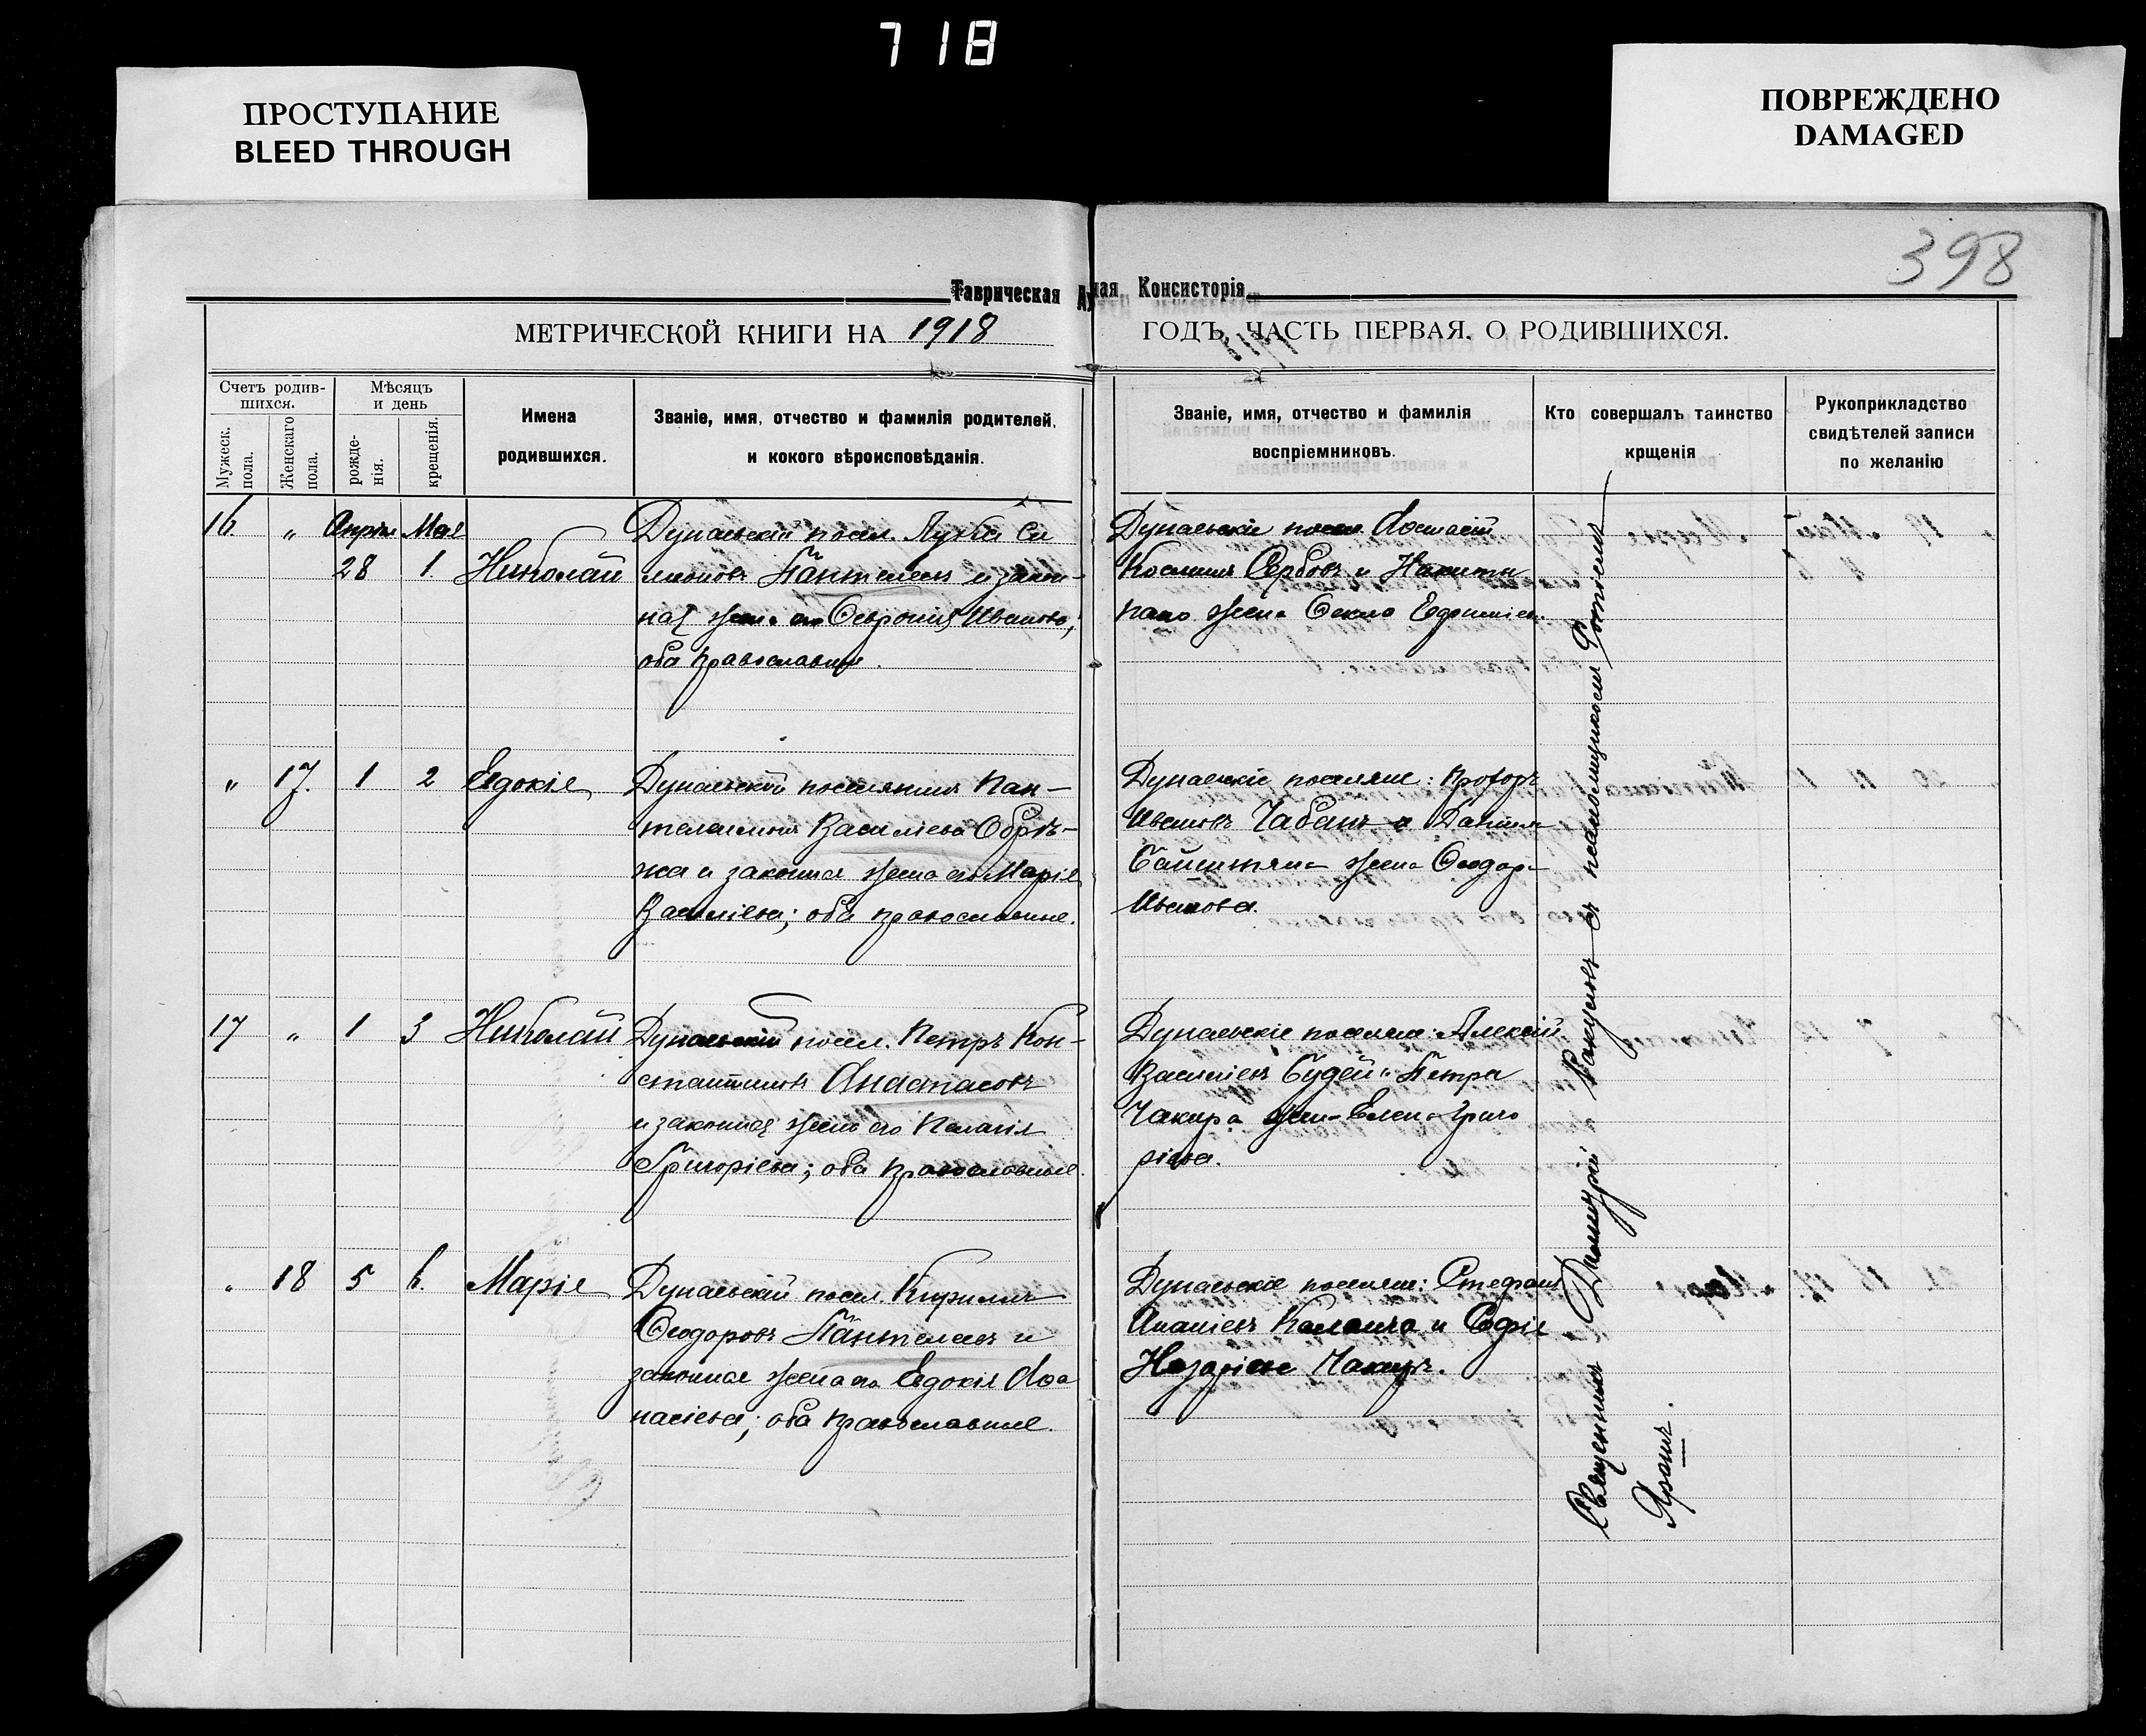 718
ПРОСТУПАНИЕ
BLEED THROUGH
ПОВРЕЖДЕНО
DAMAGED
398
Таврическая Ду ная Консисторія
МЕТРИЧЕСКОЙ КНИГИ НА 1918 ГОДЪ, ЧАСТЬ ПЕРВАЯ, О РОДИВШИХСЯ.
Счетъ родив-
шихся.
Мужеск.
пола.
Женскаго
пола.
Мѣсяцъ
и день
рожде-
нія.
крещенія.
Имена
родившихся.
Званіе, имя, отчество и фамилія родителей,
и кокого вѣроисповѣданія.
Званіе, имя, отчество и фамилія
воспріемниковъ.
Кто совершалъ таинство
крщенія
Рукоприкладство
свидѣтелей записи
по желанію
16 „ Апрѣл Мая
28 1 Николай
Дунаевскій посел. Лука Си
меоновъ Пантелеевъ и закон-
ная жена его Ѳевронія Иванова;
оба православные.
Дунаевскіе посел
Косьминъ Сербовъ и Никиты
жена Ѳекла Евфиміев.
„ 17. 1 2 Евдокія
Дунаевской поселянинъ Пан-
телеимонъ Василіевъ Обрѣ-
жа и законная жена его Марія
Василіева; оба православные.
Дунаевскіе поселяне: Прохоръ
Ивановъ Чабанъ и Даніила
жена Ѳеодора
Иванова.
17 „ 1 3 Николай
Дунаевскій посел. Петръ Кон-
стантиновъ Анастасовъ
и законная жена его Пелагія
Григоріева; оба православные.
Дунаевскіе поселяне: Алексій
Василіевъ Будей и Петра
Чакира жена Елена Григо
ріева.
„ 18 5 6. Марія
Дунаевскій посел. Кириллъ
Ѳеодоровъ Пантелеевъ и
законная жена его Евдокія Аѳа
насіева; оба православные.
Дунаевскіе поселяне: Стефанъ
Ананіевъ Каланча и Софія
Назаріева Чакиръ.
Священникъ Димитрій съ псаломщикомъ